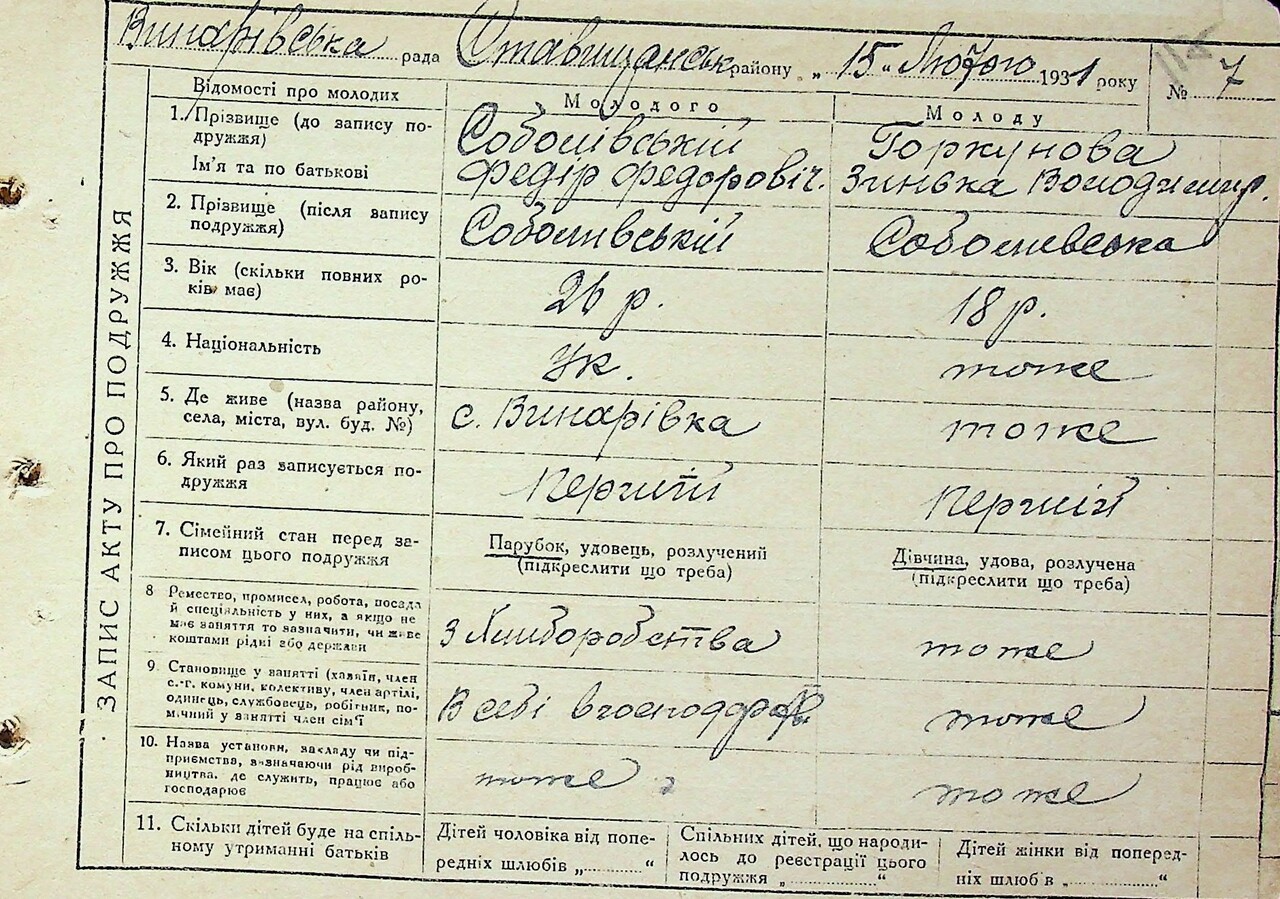 Винарівська рада Ставищанськ району „ 15 " Лютого 1931 року № 7
ЗАПИС АКТУ ПРО ПОДРУЖЖЯ
Відомості про молодих
Молодого
Молоду
1. Прізвище (до запису по-
дружжя)
Ім'я та по батькові
Соболівський
Федір Федоровіч.
Горкунова
Зинька Володимир.
2. Прізвище (після запису
подружжя)
Соболивській
Соболивська
3. Вік (скільки повних ро-
ків має)
26 р.
18 р.
4. Національність
Ук.
тоже
5. Де живе (назва району,
села, міста, вул. буд. №)
с. Винарівка
тоже
6. Який раз записується по-
дружжя
Перший
Першій
7. Сімейний стан перед за-
писом цього подружжя
Парубок, удовець, розлучений
(підкреслити що треба)
Дівчина, удова, розлучена
(підкреслити що треба)
8 Ремество, промисел, робота, посада
й спеціяльність у них, а якщо не
має заняття то зазначити, чи живе
коштами рідні або держави
З Хлиборобства
тоже
9. Становище у занятті (хазяїн, член
с.-г. комуни, колективу, член артілі,
одинець, службовець, робітник, по-
мічний у занятті член сім'ї
В себі в
тоже
10. Назва установи, закладу чи під-
приємства, зазначаючи рід вироб-
ництва, де служить, працює або
господарює
тоже
тоже
11. Скільки дітей буде на спіль-
ному утриманні батьків
Дітей чоловіка від попе-
редніх шлюбів „..........."
Спільних дітей, що народи-
лось до реєстрації цього
подружжя „..............."
Дітей жінки від поперед-
ніх шлюб в „..............."